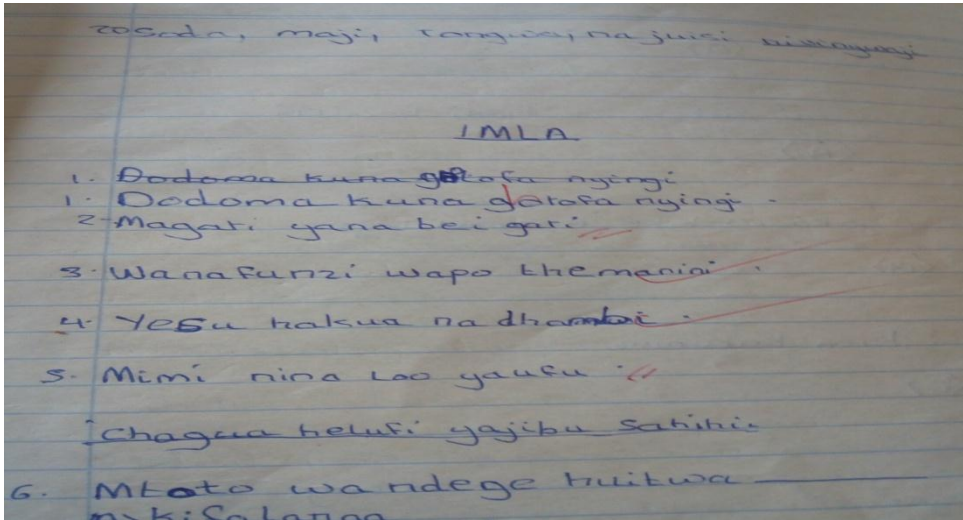 zosoda, maji, tangwizi, na juisi
IMLA
1. Dodoma kuna gorofa nyingi
1. Dodoma kuna gorofa nyingi.
2- Magari yana bei gari
3. Wanafunzi wapo themanini.
4. Yesu hakua na dhambi.
5. Mimi nina Loo yaufu.
Chagua helufi yajibu sahihi.
6. Mtoto wa ndege huitwa